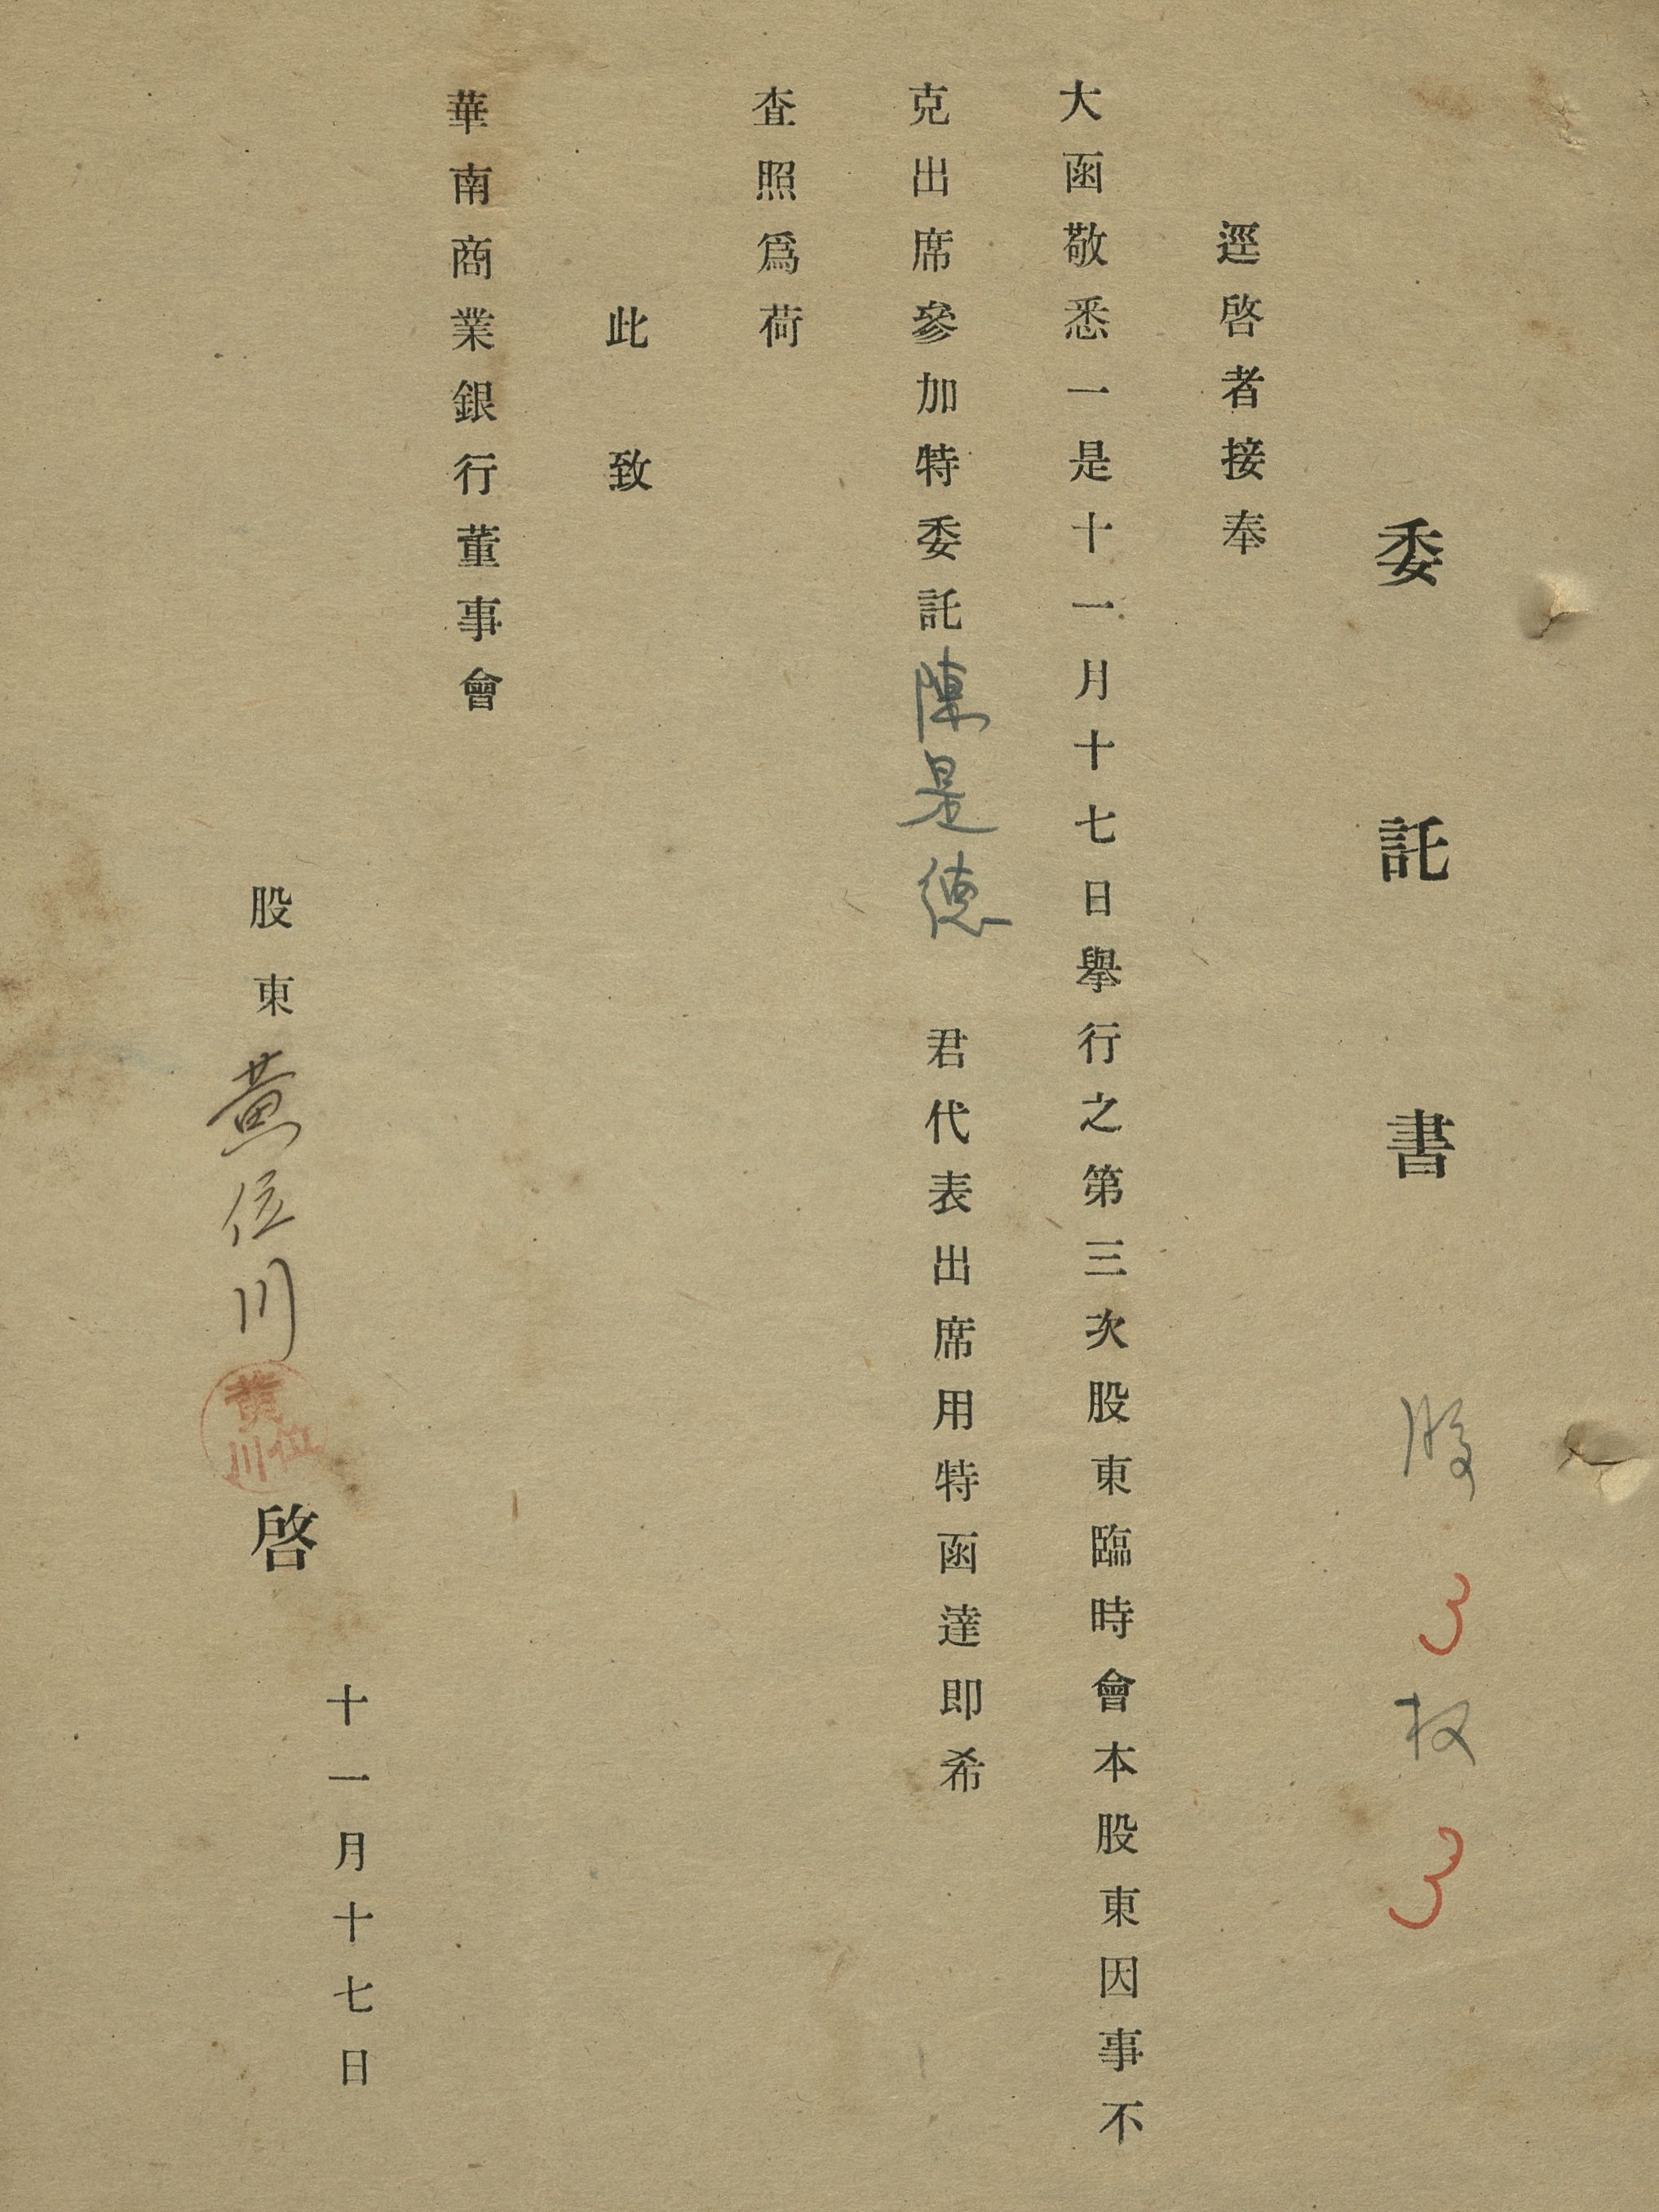 委託書
股 3 权 3
逕啓者接奉
大函敬悉一是十一月十七日擧行之第三次股東臨時會本股東因事不
克出席參加特委託陳是德 君代表出席用特函達即希
査照爲荷
此致
華南商業銀行董事會
股東 黄位川 啓
黄位川
十一月十七日